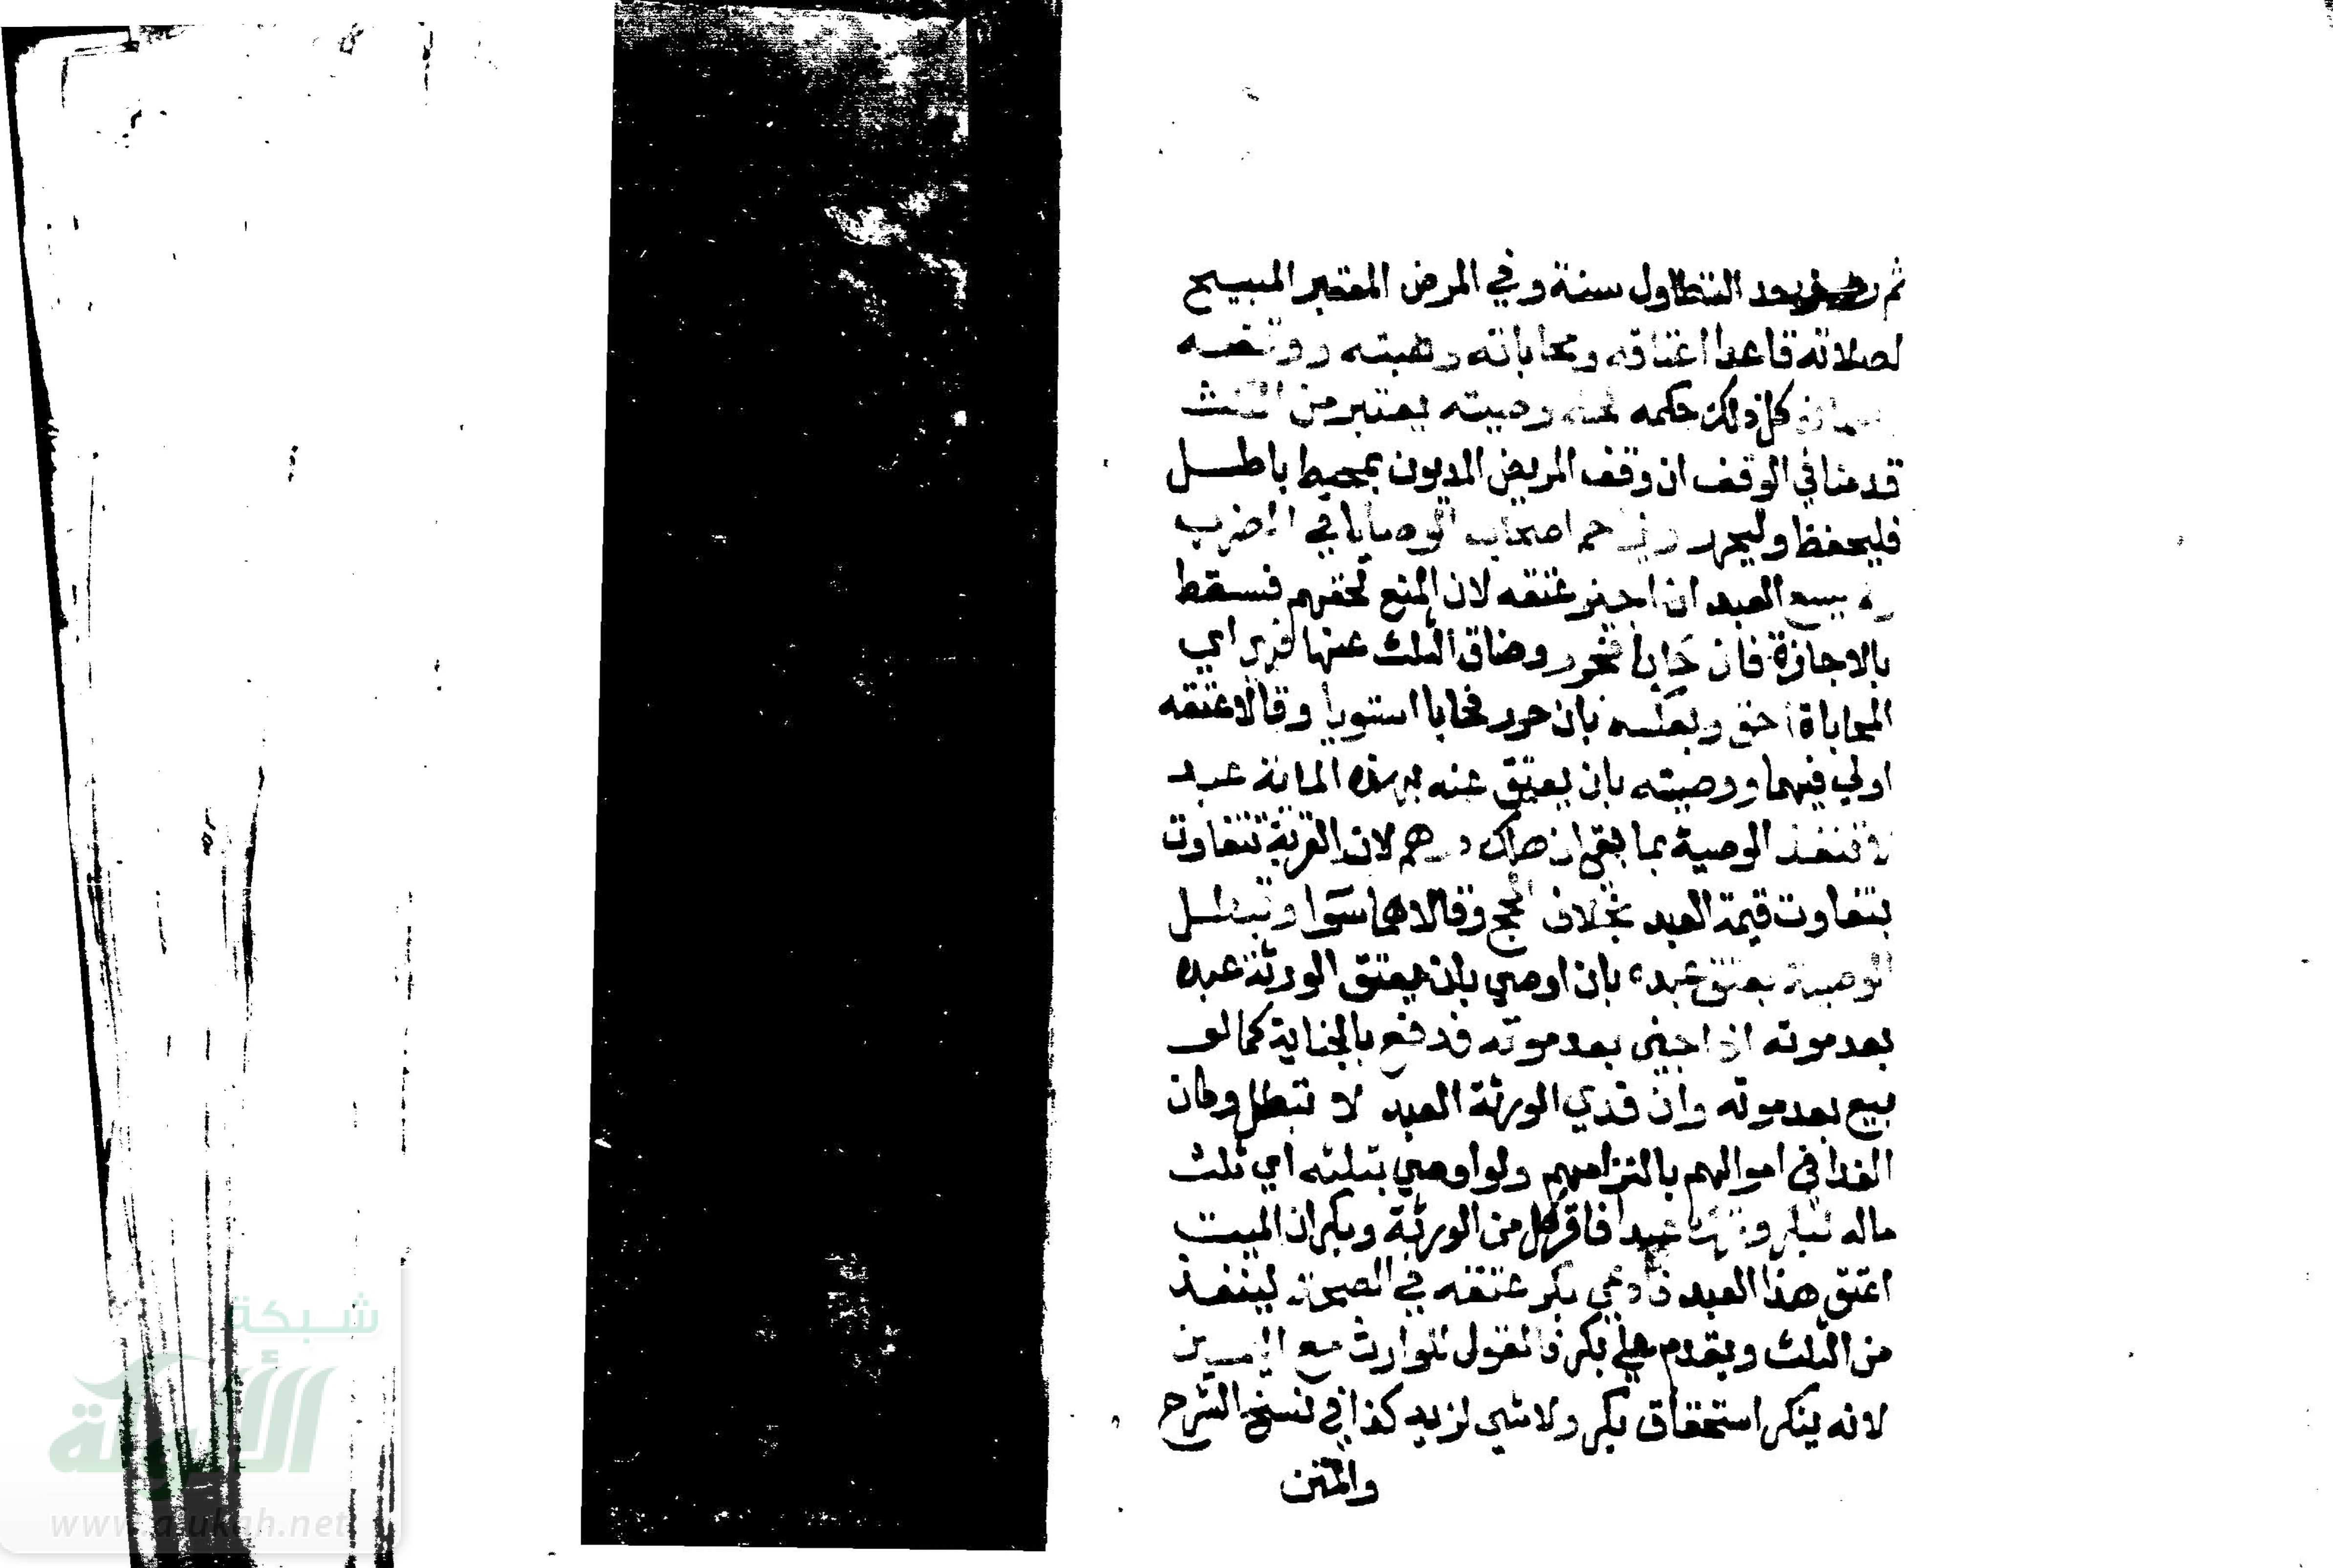 ثم رمز بعد التطاول سنة وفي المرض المعتبر المبيح
لصلاته قاعدا اعتاقه ومحاباته وهبته ووقفه
وضمانه كل ذلك حكمه وصيته يعتبر من الثلث
قدمنا في الوقف ان وقف المريض المديون بمحيط باطل
فليحفظ وليحرر ويزاحم اصحاب الوصايا في الضرب
العبد ان اجيز عتقه لان المنع لحقهم فسقط
بالاجازة فان حابا فحرر وضاق الثلث عنها فهي اي
المحاباة احق وبعكسه بان حرر فحابا استويا وقالا عتقه
اولي فيهما ووصيته بان يعتق عنه بهذه المائة عبد
لا تنفذ الوصية بما بقي ان هلك درهم لان القربة تتفاوت
بتفاوت قيمة العبد بخلاف الحج وقالا هما سوا وتبطل
الوصية بعتق عبده بان اوصي بان يعتق الورثة عبده
بعد موته اذا جني بعد موته فدفع بالجناية كما لو
بيع بعد موته وان فدي الورثة العبد لا تبطل وكان
الفدا في اموالهم بالتزامهم ولو اوصي بثلثه اي ثلث
ماله لبكر وترك عبدا فاقر كل من الورثة وبكر ان الميت
اعتق هذا العبد فادعي بكر عتقه في الصحة لينفذ
من الثلث ويقدم علي بكر فالقول للوارث مع اليمين
لانه ينكر استحقاق بكر ولا شي لزيد كذا في نسخ الشرح
والمتن
شبكة
الألوكة
www.alukah.net